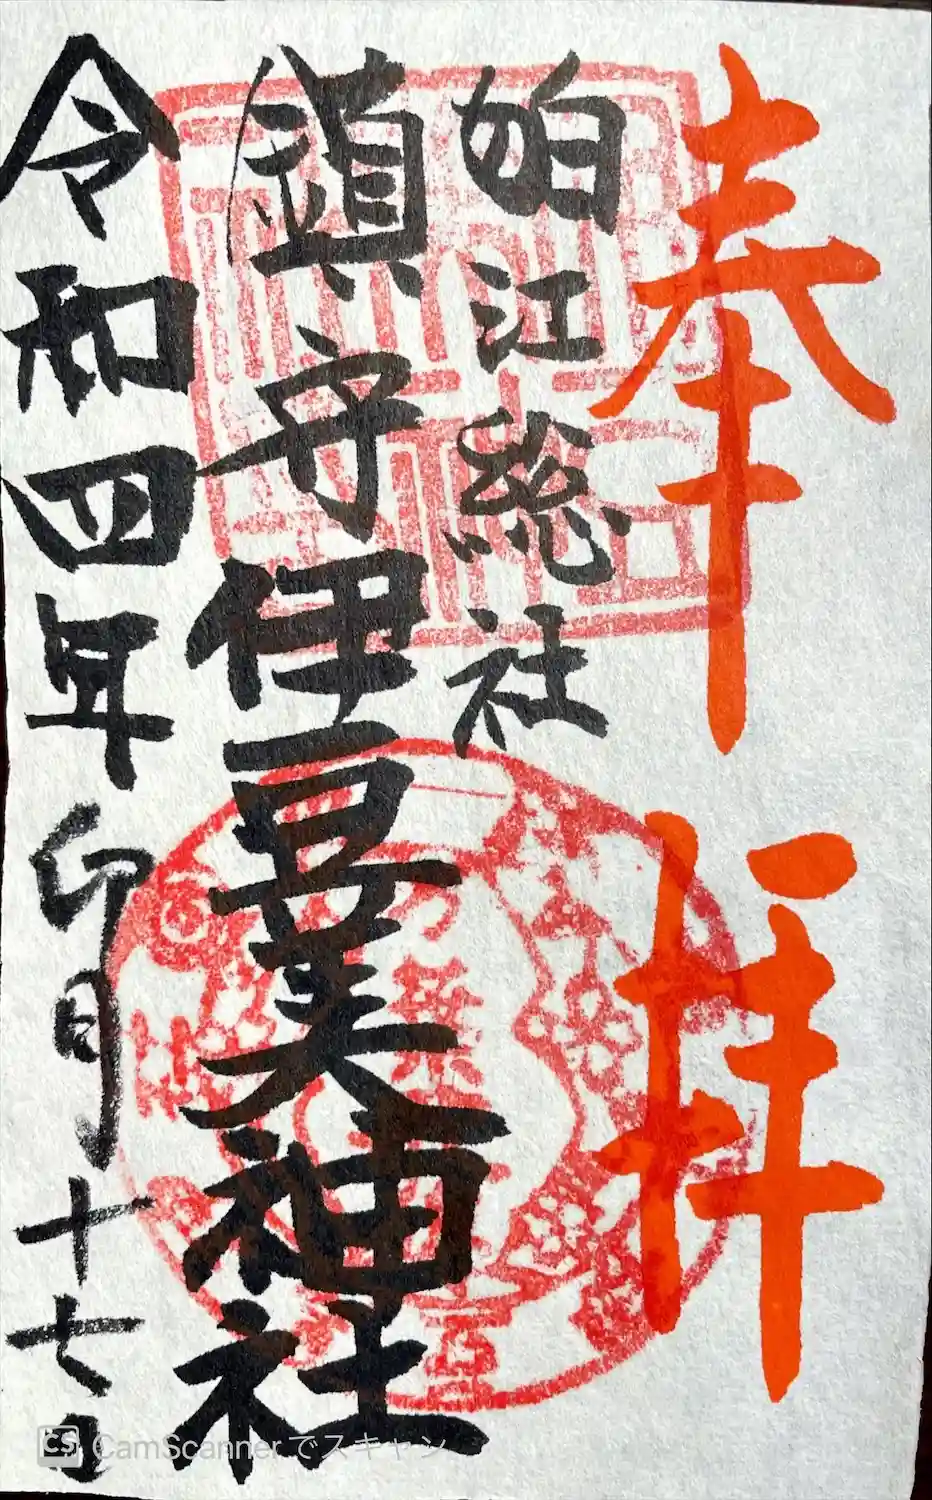 奉拝
狛江総社
鎮守伊豆美神社
令和四年卯月十七日
CS CamScannerでスキャン